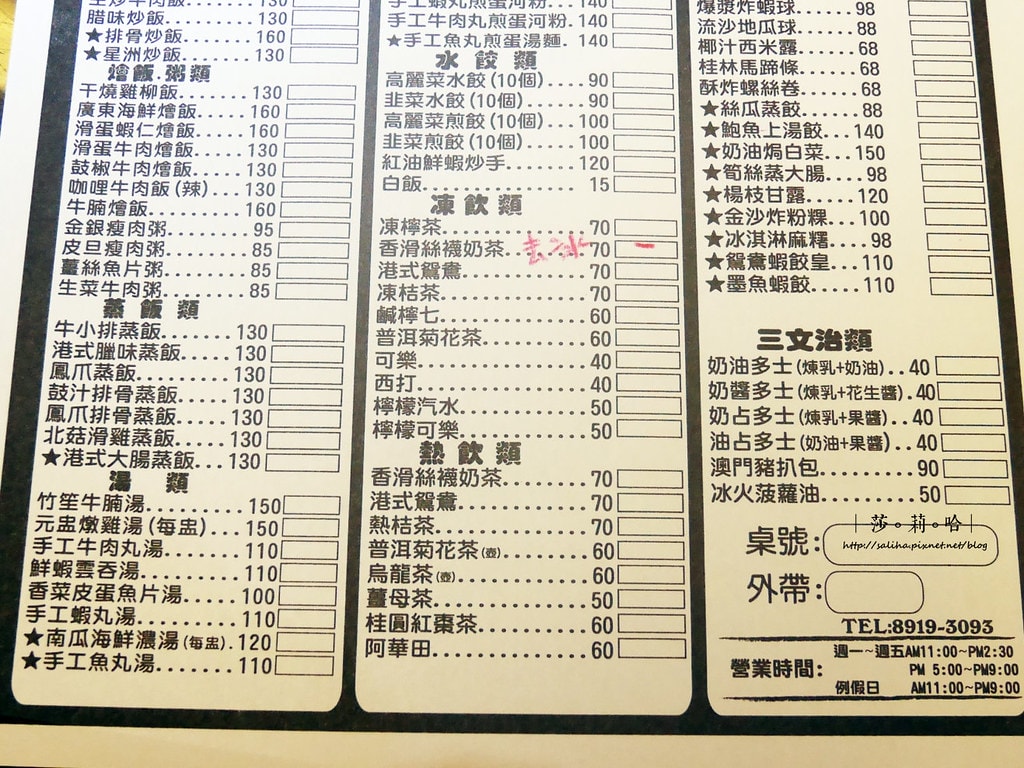 生炒牛肉飯.....130
腊味炒飯......130
★排骨炒飯......160
★星洲炒飯......130
燴飯.粥類
干燒雞柳飯......130
廣東海鮮燴飯.....160
滑蛋蝦仁燴飯.....160
滑蛋牛肉燴飯.....130
鼓椒牛肉燴飯.....130
咖哩牛肉飯(辣)...130
牛腩燴飯.........160
金銀瘦肉粥........95
皮旦瘦肉粥........85
薑絲魚片粥........85
生菜牛肉粥........85
蒸飯類
牛小排蒸飯.......130
港式臘味蒸飯.....130
鳳爪蒸飯.........130
鼓汁排骨蒸飯.....130
鳳爪排骨蒸飯.....130
北菇滑雞蒸飯.....130
★港式大腸蒸飯...130
湯類
竹笙牛腩湯.......150
元盅燉雞湯(每盅)...150
手工牛肉丸湯......110
鮮蝦雲吞湯........110
香菜皮蛋魚片湯....100
手工蝦丸湯........110
★南瓜海鮮濃湯(每盅).120
★手工魚丸湯.......110
手工蝦丸煎蛋河粉.140
手工牛肉丸煎蛋河粉.140
★手工魚丸煎蛋湯麵.140
水餃類
高麗菜水餃(10個)...90
韭菜水餃(10個).....90
高麗菜煎餃(10個)...100
韭菜煎餃(10個).....100
紅油鮮蝦炒手.......120
白飯............... 15
凍飲類
凍檸茶..............70
香滑絲襪奶茶 去冰 70 一
港式鴛鴦............70
凍桔茶..............70
鹹檸七..............60
普洱菊花茶..........60
可樂................40
西打................40
檸檬汽水............50
檸檬可樂............50
熱飲類
香滑絲襪奶茶........70
港式鴛鴦............70
熱桔茶..............70
普洱菊花茶(壺)......60
烏龍茶(壺)..........60
薑母茶..............50
桂圓紅棗茶..........60
阿華田..............60
爆漿炸蝦球......98
流沙地瓜球......88
椰汁西米露......68
桂林馬蹄條......68
酥炸螺絲卷......68
★絲瓜蒸餃......88
★鮑魚上湯餃...140
★奶油焗白菜...150
★筍絲蒸大腸....98
★楊枝甘露.....120
★金沙炸粉粿...100
★冰淇淋麻糬....98
★鴛鴦蝦餃皇...110
★墨魚蝦餃.....110
三文治類
奶油多士(煉乳+奶油)..40
奶醬多士(煉乳+花生醬).40
奶占多士(煉乳+果醬)..40
油占多士(奶油+果醬)..40
澳門豬扒包..........90
冰火菠蘿油.........50
| 莎。莉。哈 |
http://saliha.pixnet.net/blog
桌號:
外帶:
TEL:8919-3093
營業時間:
週一~週五AM11:00~PM2:30
PM 5:00~PM9:00
例假日 AM11:00~PM9:00